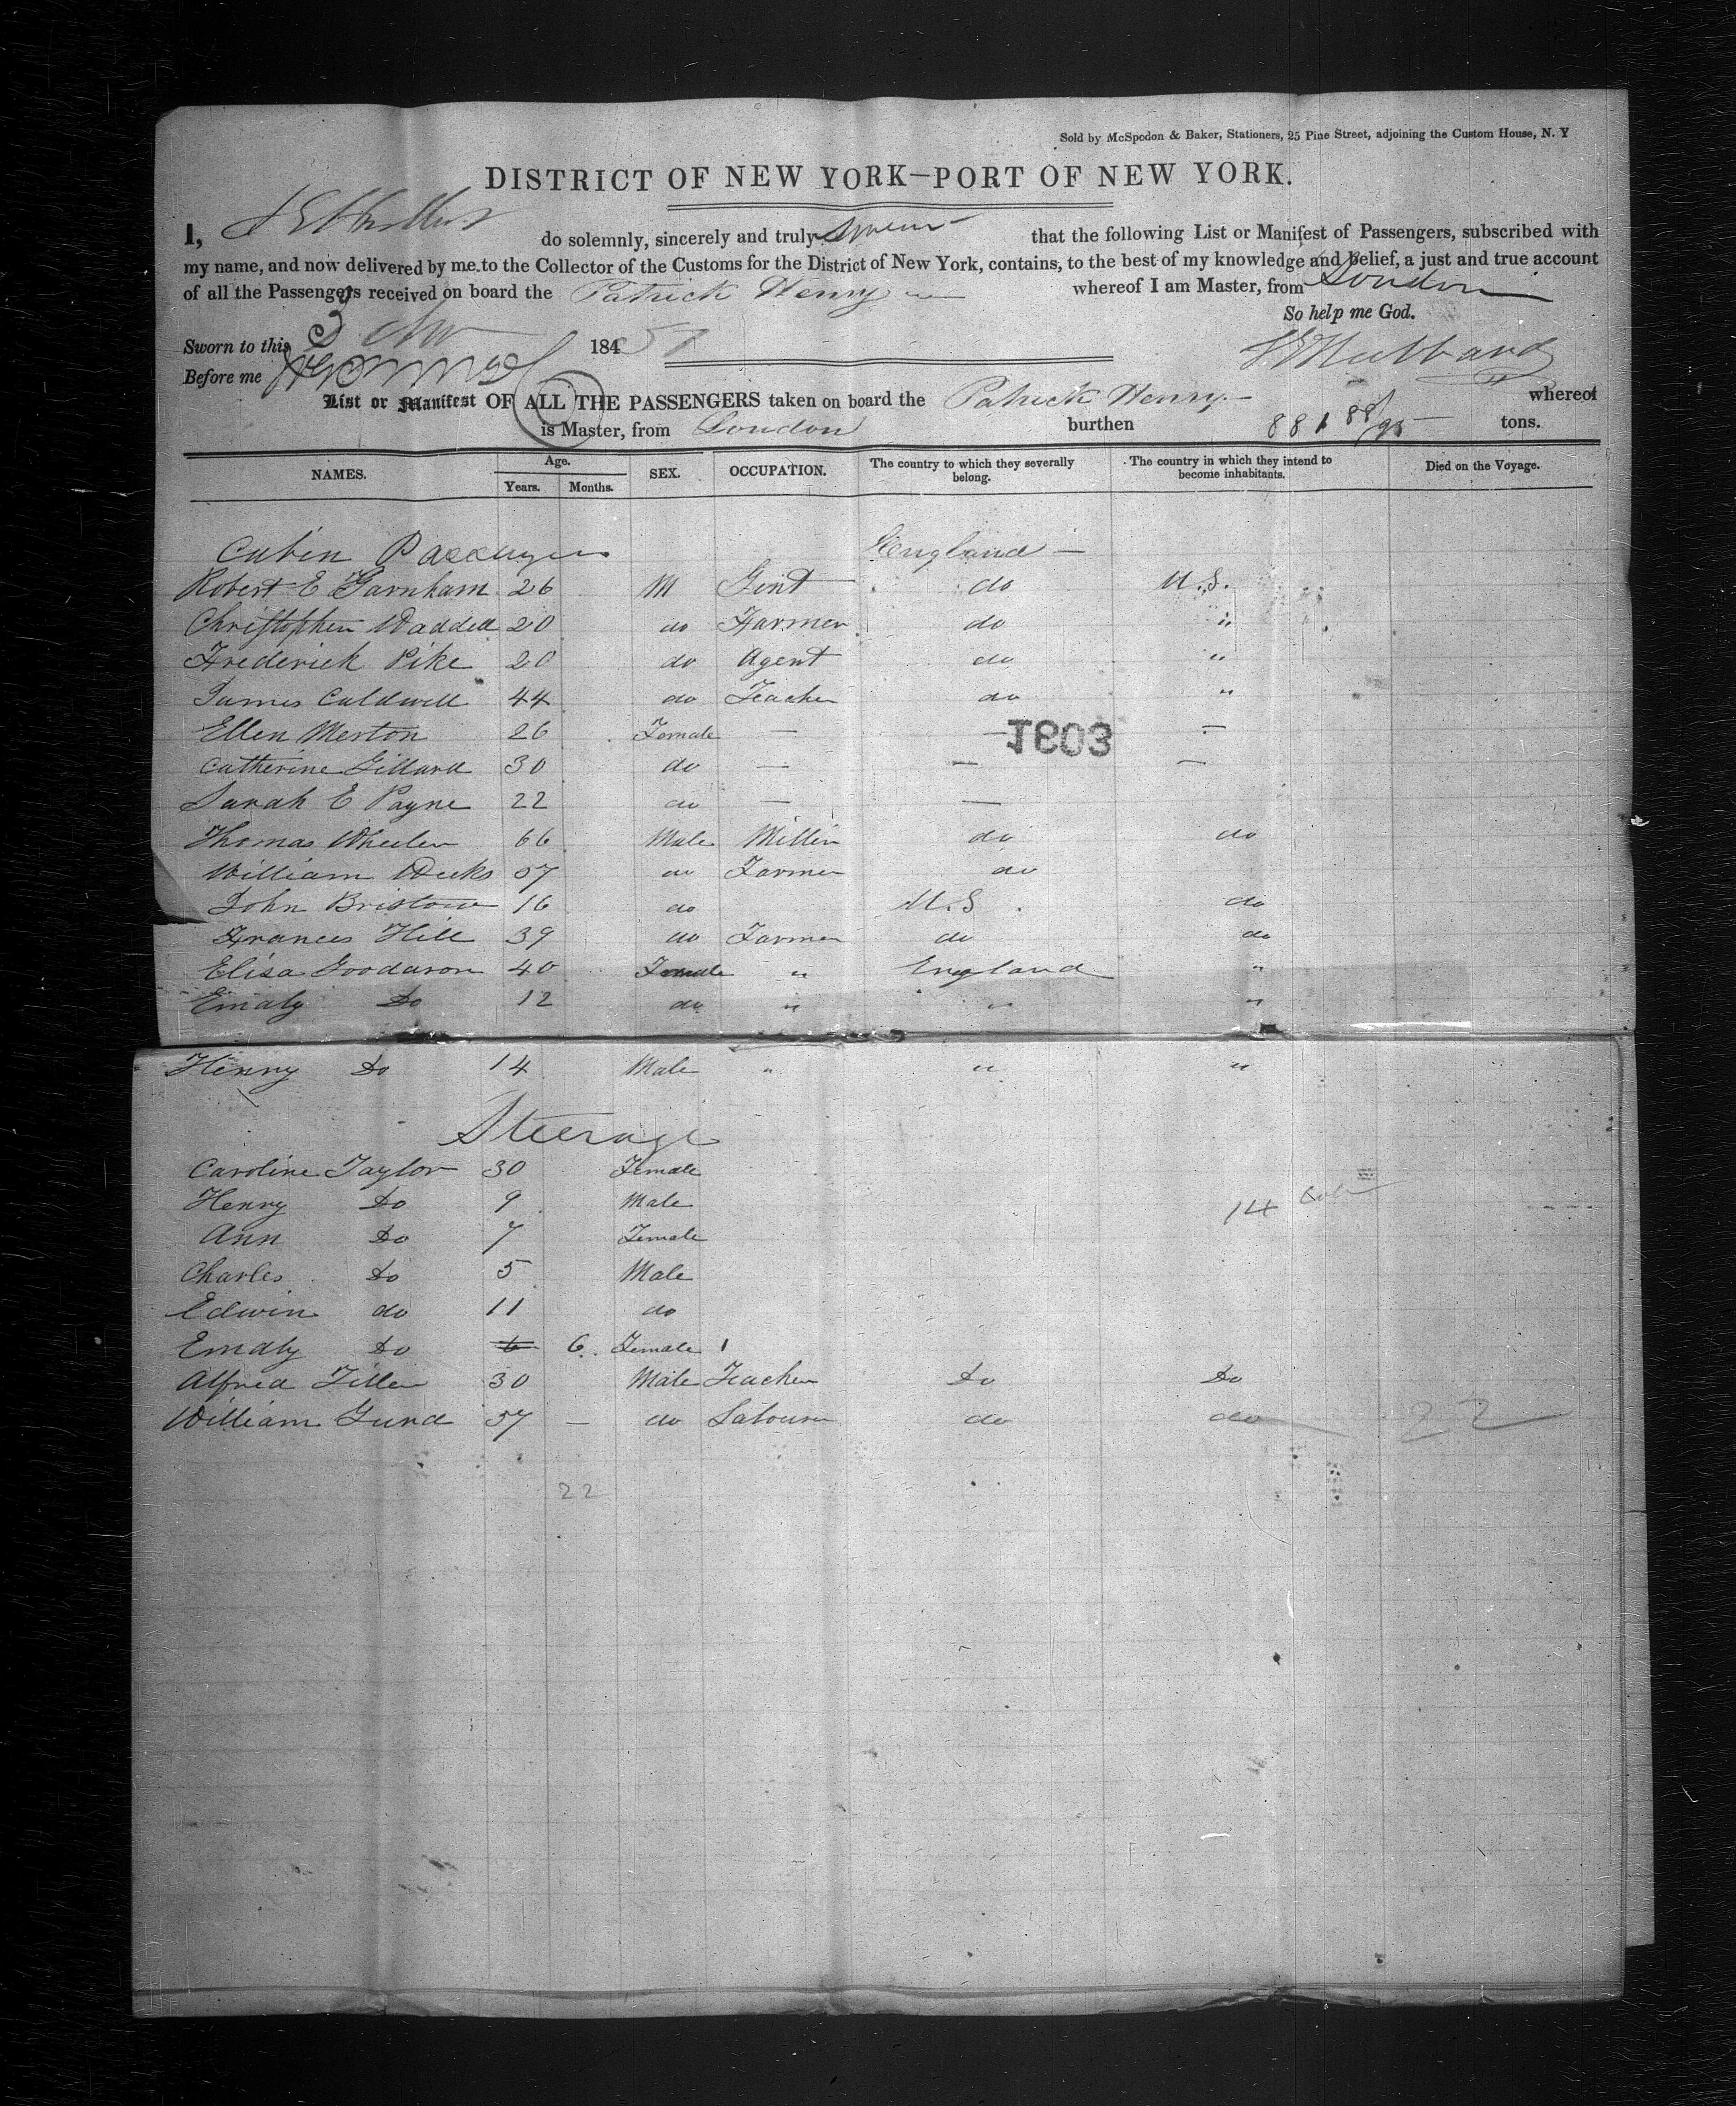 Sold by McSpedon & Baker, Stationers, 25 Pine Street, adjoining the Custom House, N. Y
DISTRICT OF NEW YORK—PORT OF NEW YORK.
I, do solemnly, sincerely and truly swear that the following List or Manifest of Passengers, subscribed with
my name, and now delivered by me to the Collector of the Customs for the District of New York, contains, to the best of my knowledge and belief, a just and true account
of all the Passengers received on board the Patrick Henry whereof I am Master, from London
So help me God.
Sworn to this 3 Nov 184 51
Before me
List or Manifest OF ALL THE PASSENGERS taken on board the Patrick Henry whereof
is Master, from London burthen 881 88/95 tons.
NAMES. Age. Years. Months. SEX. OCCUPATION. The country to which they severally belong. The country in which they intend to become inhabitants. Died on the Voyage.
Cabin Passengers England —
Robert E Garnham 26 M Gent do U.S.
Christopher Waddell 20 do Farmer do "
Frederick Pike 20 do Agent do "
James Caldwell 44 do Teacher do "
Ellen Merton 26 Female — — —
1803
Catherine Gillard 30 do — — —
Sarah E Payne 22 do — —
Thomas Wheeler 66 Male Miller do do
William Weeks 57 do Farmer do
John Bristow 16 do U.S. do
Frances Hill 39 do Farmer do do
Elisa Goodason 40 Female " England "
Emaly Do 12 do " " "
Henry Do 14 Male " " "
Steerage
Caroline Taylor 30 Female
Henry Do 9 Male
14
Ann Do 7 Female
Charles Do 5 Male
Edwin do 11 do
Emaly Do 6 6 Female
Alfred Tiller 30 Male Teacher Do Do
William Gund 57 — do Labourer do do 22
22